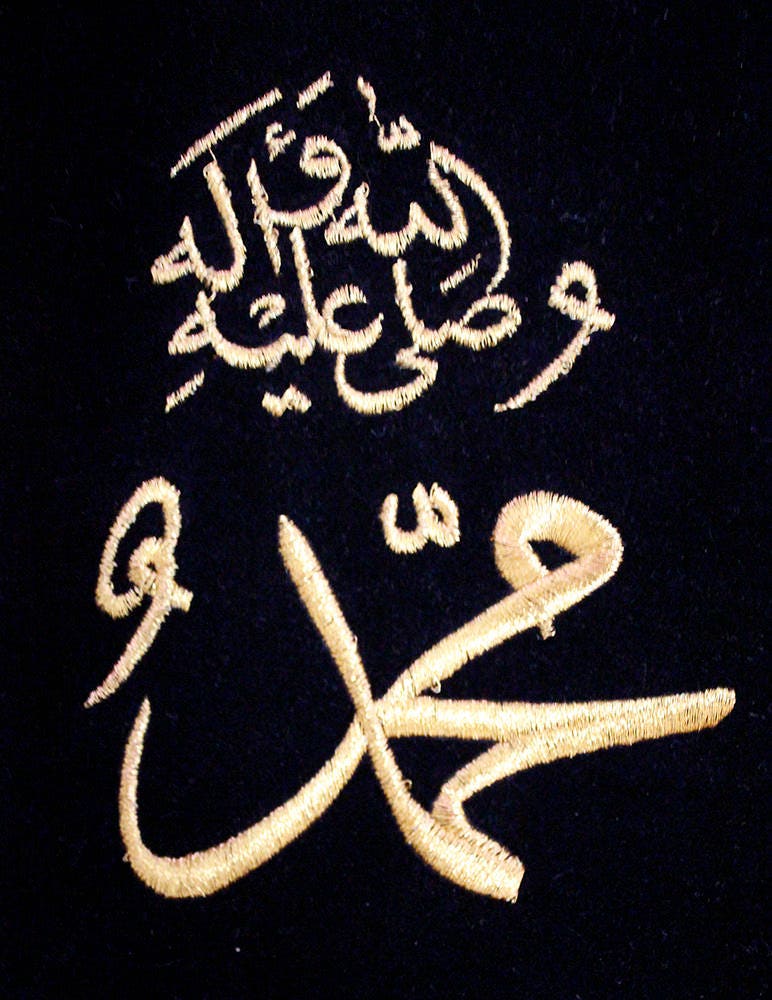 وصلى الله عليه وآله
محمد